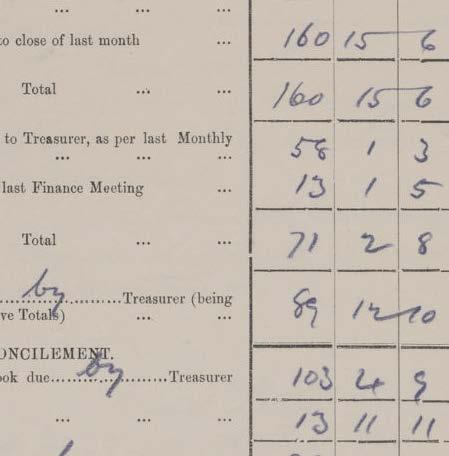 ... ... ...
to close of last month ... 160 15 6
Total ... ... 160 15 6
to Treasurer, as per last Monthly
... ... ... 58 1 3
last Finance Meeting ... 13 1 5
Total ... ... 71 2 8
by Treasurer (being
ve Totals) ... ... 89 12 10
ONCILEMENT.
ook due by Treasurer 103 4 9
... ... ... 13 11 11